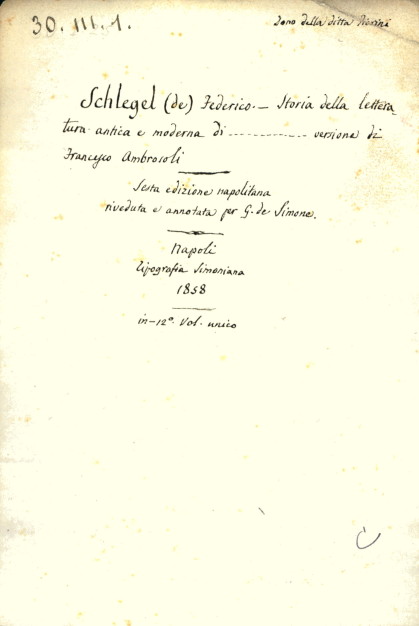 30. III. 1.
Dono della ditta
Schlegel (de) Federico. — Storia della lettera-
tura antica e moderna di ------------ versione di
Francesco Ambrosoli
Sesta edizione napolitana
riveduta e annotata per G. de Simone.
Napoli
tipografia Simoniana
1858
in-12°. Vol. unico